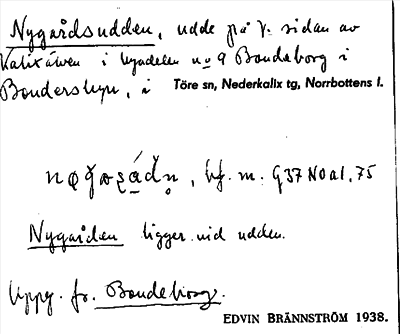 Nygårdsudden, udde på v. sidan av
Kalixälven i byadelen no 9 Bondeborg i
Bondersbyn, i Töre sn, Nederkalix tg, Norrbottens l.
hf. m. G 37 NO a 1, 75
Nygården ligger vid udden.
Uppg. fr. Bondeborg.
EDVIN BRÄNNSTRÖM 1938.